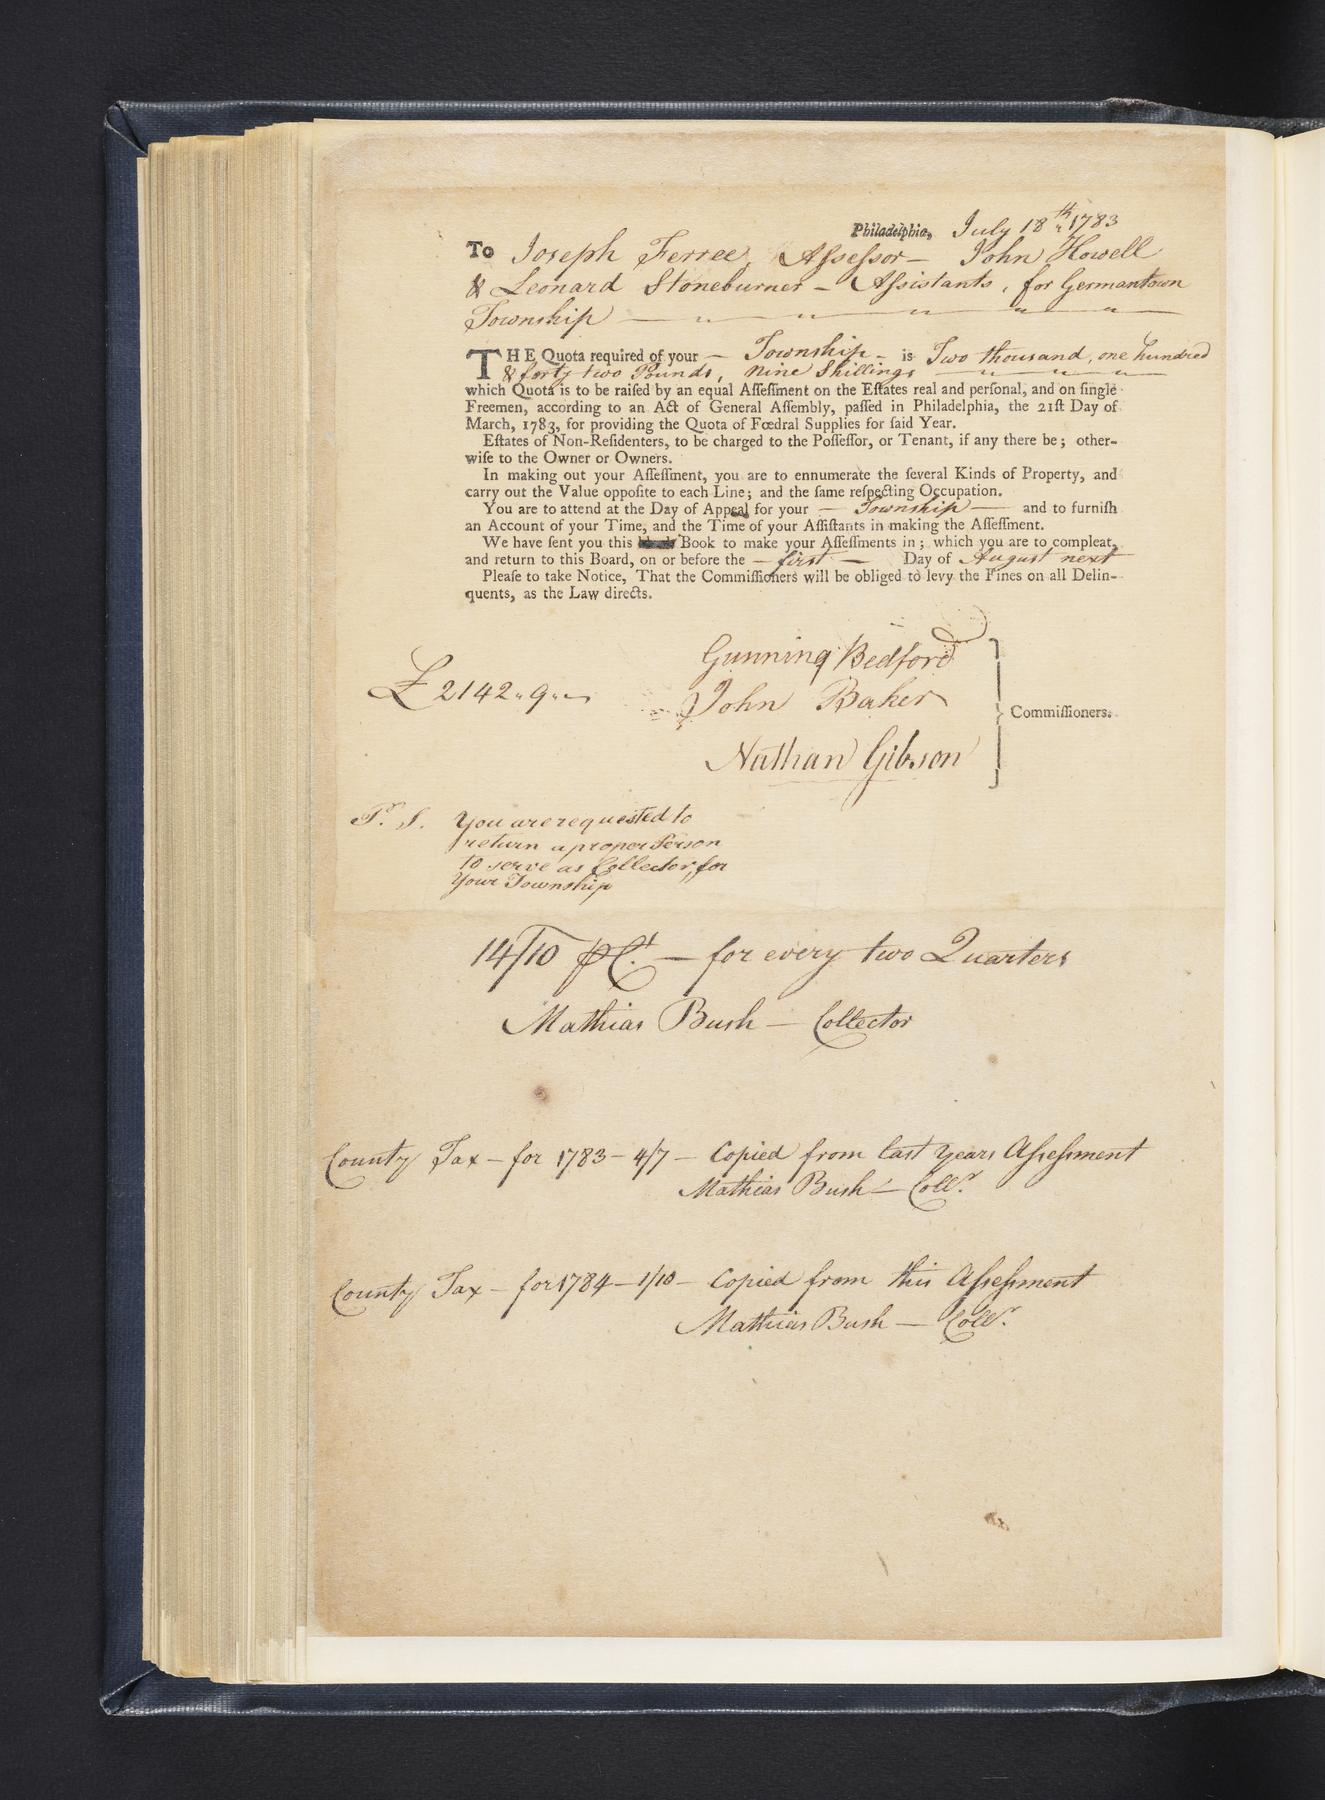 Philadelphia, July 18th 1783
To Joseph Ferree, Aſseſsor — John Howell
& Leonard Stoneburner — Aſsistants, for Germantown
Township
THE Quota required of your — Township — is Two thousand, one hundred
& forty two Pounds, nine Shillings
which Quota is to be raiſed by an equal Aſſeſſment on the Eſtates real and perſonal, and on ſingle
Freemen, according to an Act of General Aſſembly, paſſed in Philadelphia, the 21ſt Day of
March, 1783, for providing the Quota of Fœdral Supplies for ſaid Year.
Eſtates of Non-Reſidenters, to be charged to the Poſſeſſor, or Tenant, if any there be; other-
wiſe to the Owner or Owners.
In making out your Aſſeſſment, you are to ennumerate the ſeveral Kinds of Property, and
carry out the Value oppoſite to each Line; and the ſame reſpecting Occupation.
You are to attend at the Day of Appeal for your — Township — and to furniſh
an Account of your Time, and the Time of your Aſſiſtants in making the Aſſeſſment.
We have ſent you this Book to make your Aſſeſſments in; which you are to compleat,
and return to this Board, on or before the — first — Day of August next
Pleaſe to take Notice, That the Commiſſioners will be obliged to levy the Fines on all Delin-
quents, as the Law directs.
Gunning Bedford
£2142 " 9 " —
John Baker
Commiſſioners.
Nathan Gibson
P. S. You are requested to
return a proper Person
to serve as Collector, for
Your Township
14/10 ⅌ Ct. — for every two Quarters
Mathias Bush — Collector
County Tax — for 1783 — 4/7 — Copied from last years Aſseſsment
Mathias Bush — Collr.
County Tax — for 1784 — 1/10 — Copied from this Aſseſsment
Mathias Bush — Collr.